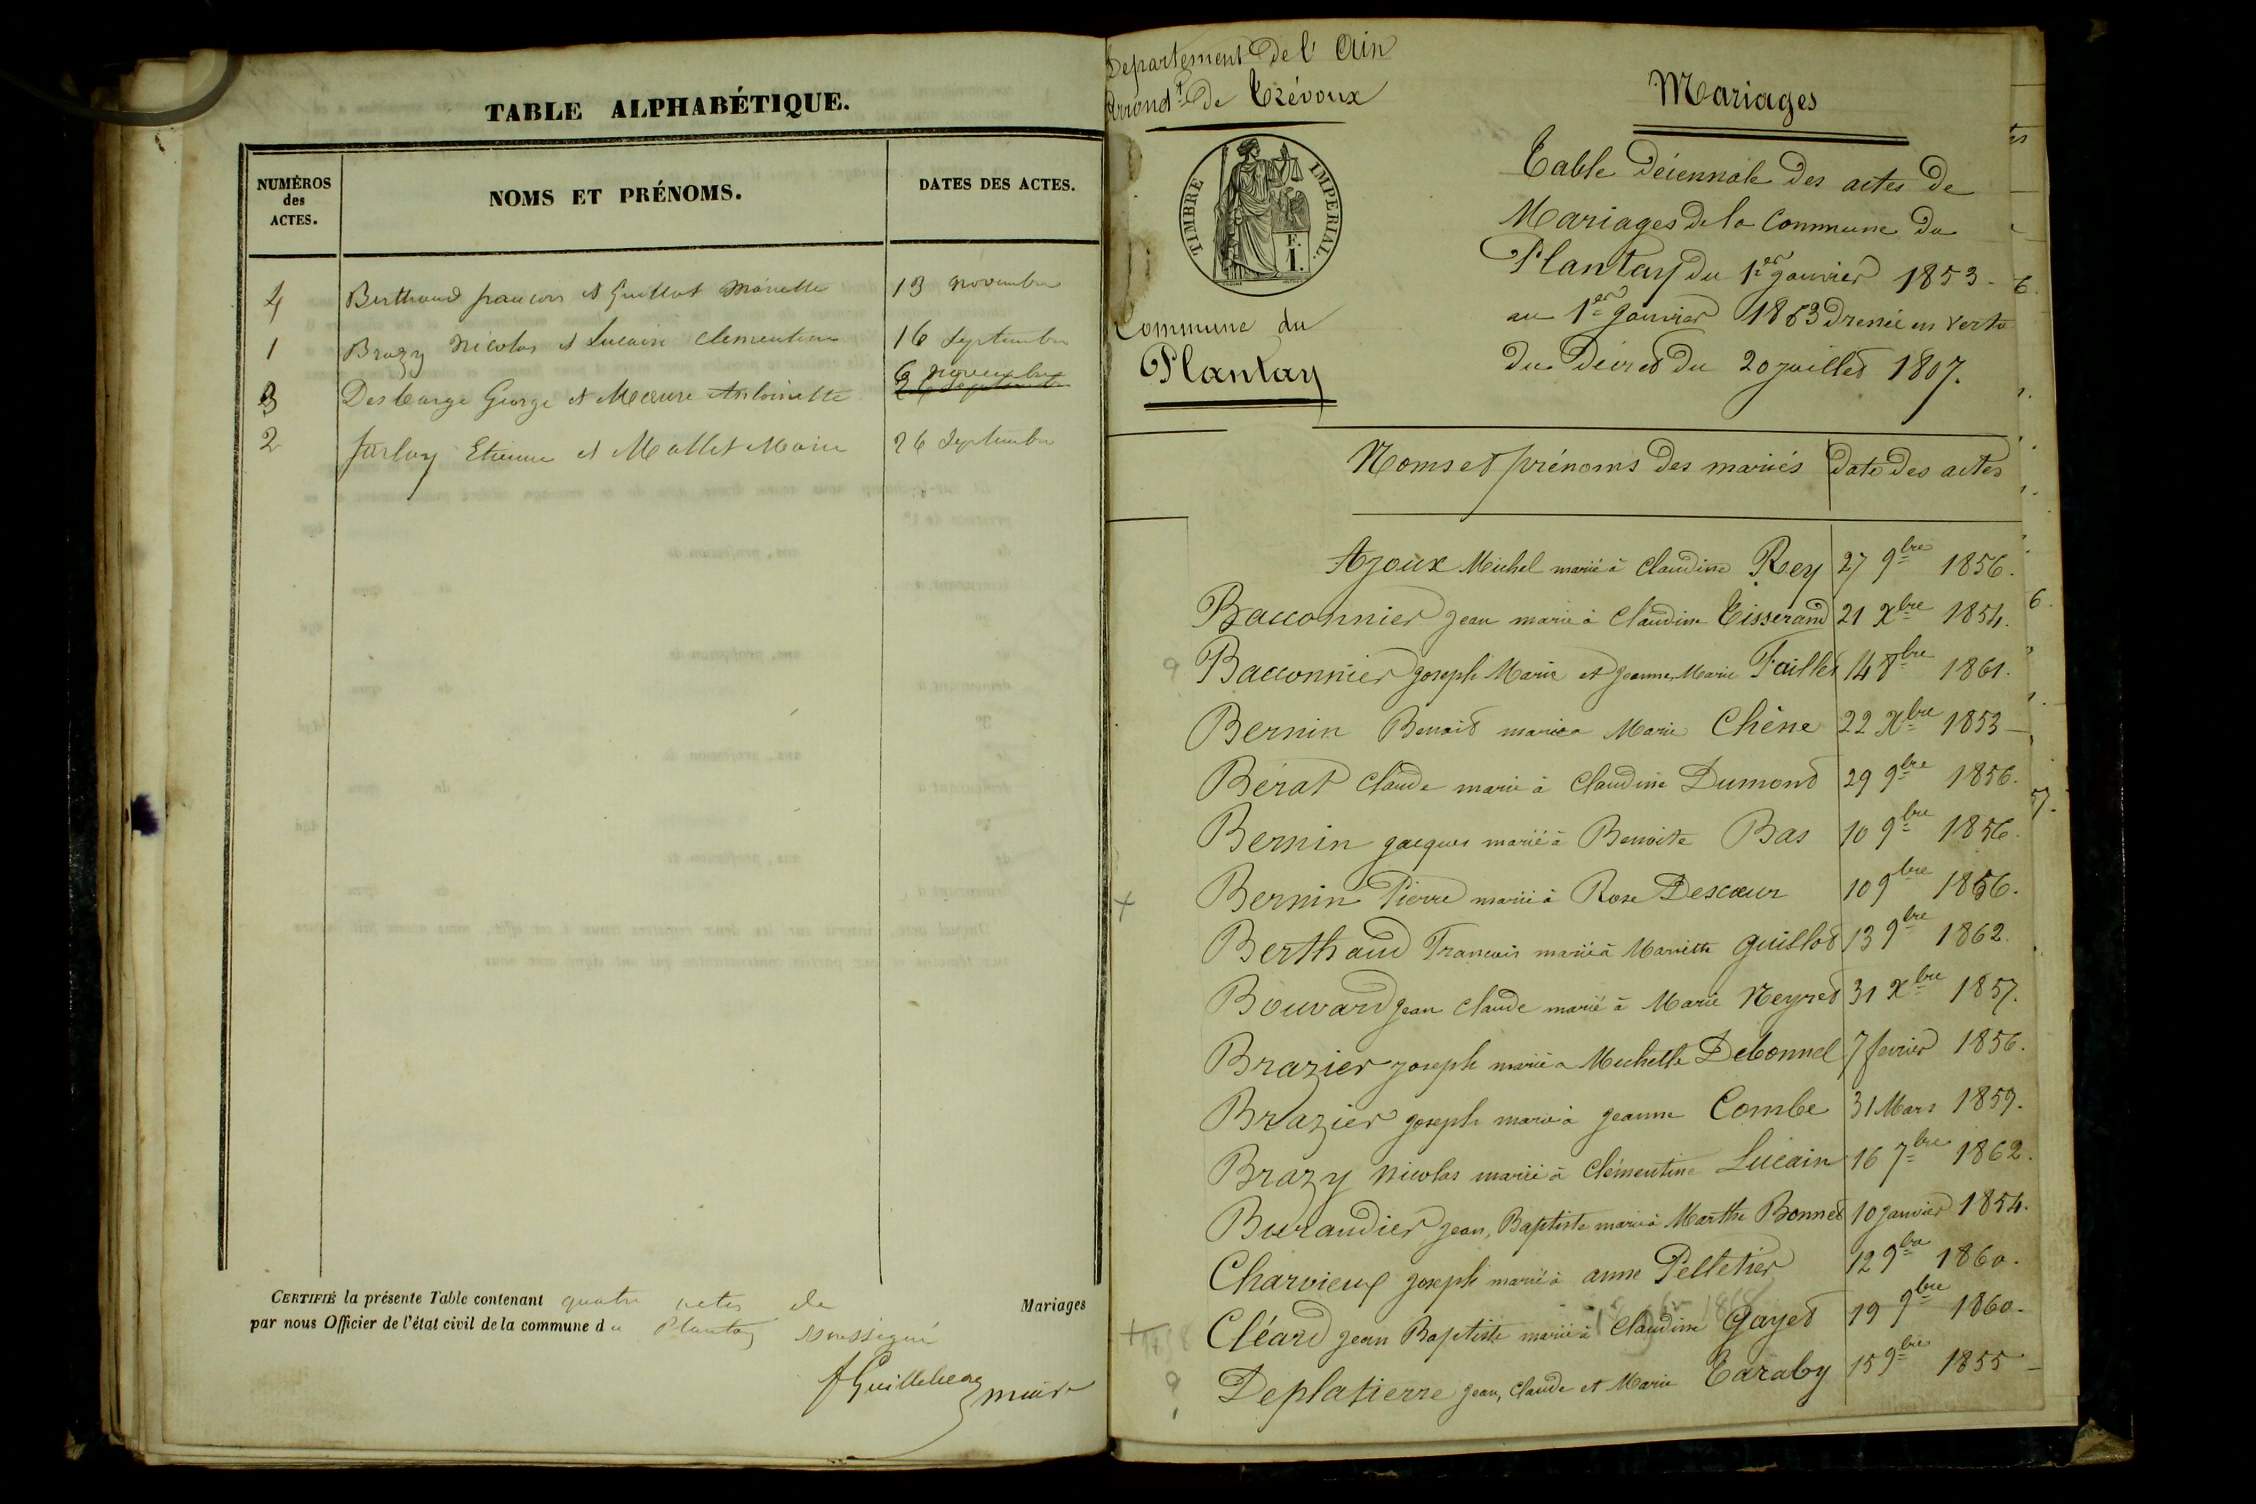 TABLE ALPHABÉTIQUE.
NUMÉROS
des
ACTES.
NOMS ET PRÉNOMS.
DATES DES ACTES.
4 Berthaud francois et Guillot Mariette 13 novembre
1 Brazy Nicolas et Lucain Clementine 16 Septembre
3 Des George et Antoinette 6 novembre
2 Jarlay Etienne et Mallet Marie 26 Septembre
CERTIFIÉ la présente Table contenant quatre actes de Mariages
par nous Officier de l'état civil de la commune du Plantay soussigné
maire
Departement de l'Ain
Arrondt de Trévoux
TIMBRE IMPERIAL.
E.
I.
Commune du
Plantay
Mariages
Table Décennale des actes de
Mariages de la Commune du
Plantay du 1er janvier 1853
au 1er janvier 1863 Dressée en vertu
du Décret du 20 juillet 1807.
Noms et prénoms des mariés Date des actes
Ajoux Michel marié à Claudine Rey 27 9bre 1856.
Bacconnier jean marié à Claudine Tisserand 21 Xbre 1854.
Bacconnier joseph Marie et jeanne Marie Taillet 14 8bre 1861.
Bernin Benoit marié a Marie Chêne 22 Xbre 1853
Bérat Claude marié à Claudine Dumond 29 9bre 1856.
Bernin jacques marié à Benoite Bas 10 9bre 1856.
Bernin Pierre marié à Rose Descoeur 10 9bre 1856.
Berthaud Francois marié à Mariette guillot 13 9bre 1862.
Bouvard jean Claude marié à Marie Neyret 31 Xbre 1857.
Brazier joseph marié a Michelle Debonnel 7 fevrier 1856.
Brazier joseph marié à jeanne Combe 31 Mars 1859.
Brazy Nicolas marié à Clémentine Lucain 16 7bre 1862.
Buraudier jean, Baptiste marié à Marthe Bonnet 10 janvier 1854.
Charvieux joseph marié à anne Pelletier 12 9bre 1860.
Cléard jean Baptiste marié à Claudine gayet 19 9bre 1860.
Deplatierre jean, Claude et Marie Taraby 15 9bre 1855